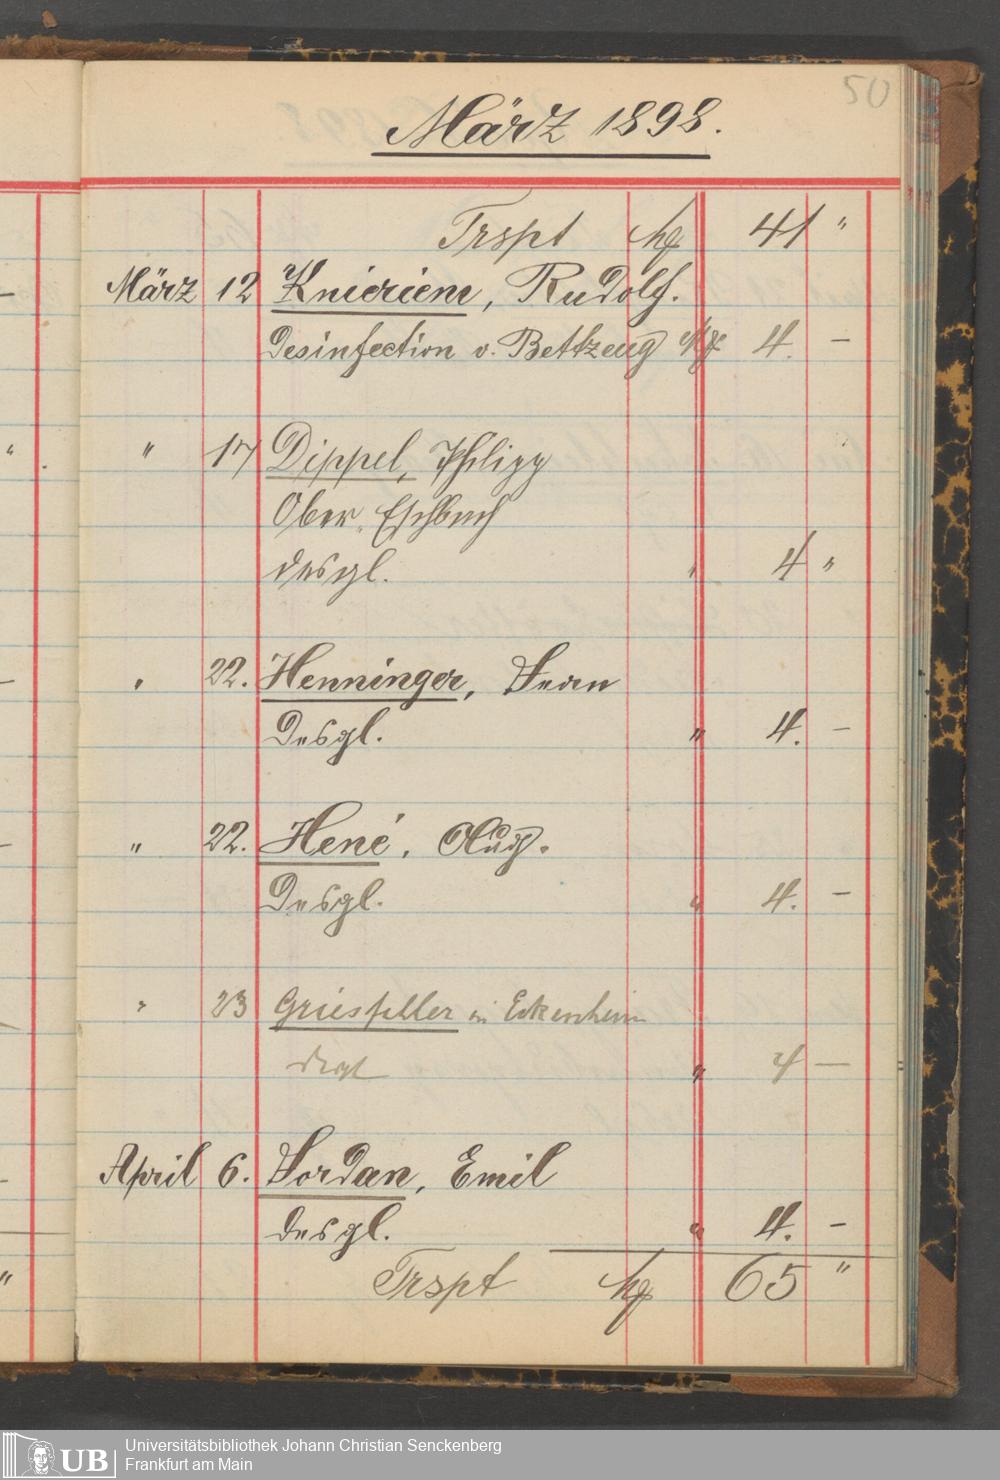 50
März 1898.
Trspt Mk 41 "
März 12 Knieriem, Rudolf.
Desinfection v. Bettzeug Mk 4. —
" 17 Dippel, Philipp
Ober Eschbach
desgl. " 4 "
" 22. Henninger, Jean
Desgl. " 4. —
" 22. Hené, Aug.
Desgl. " 4. —
" 23 Griesfeller in Eckenheim
desgl " 4 —
April 6. Jordan, Emil
desgl. " 4. —
Trspt Mk 65 "
UB Universitätsbibliothek Johann Christian Senckenberg
Frankfurt am Main